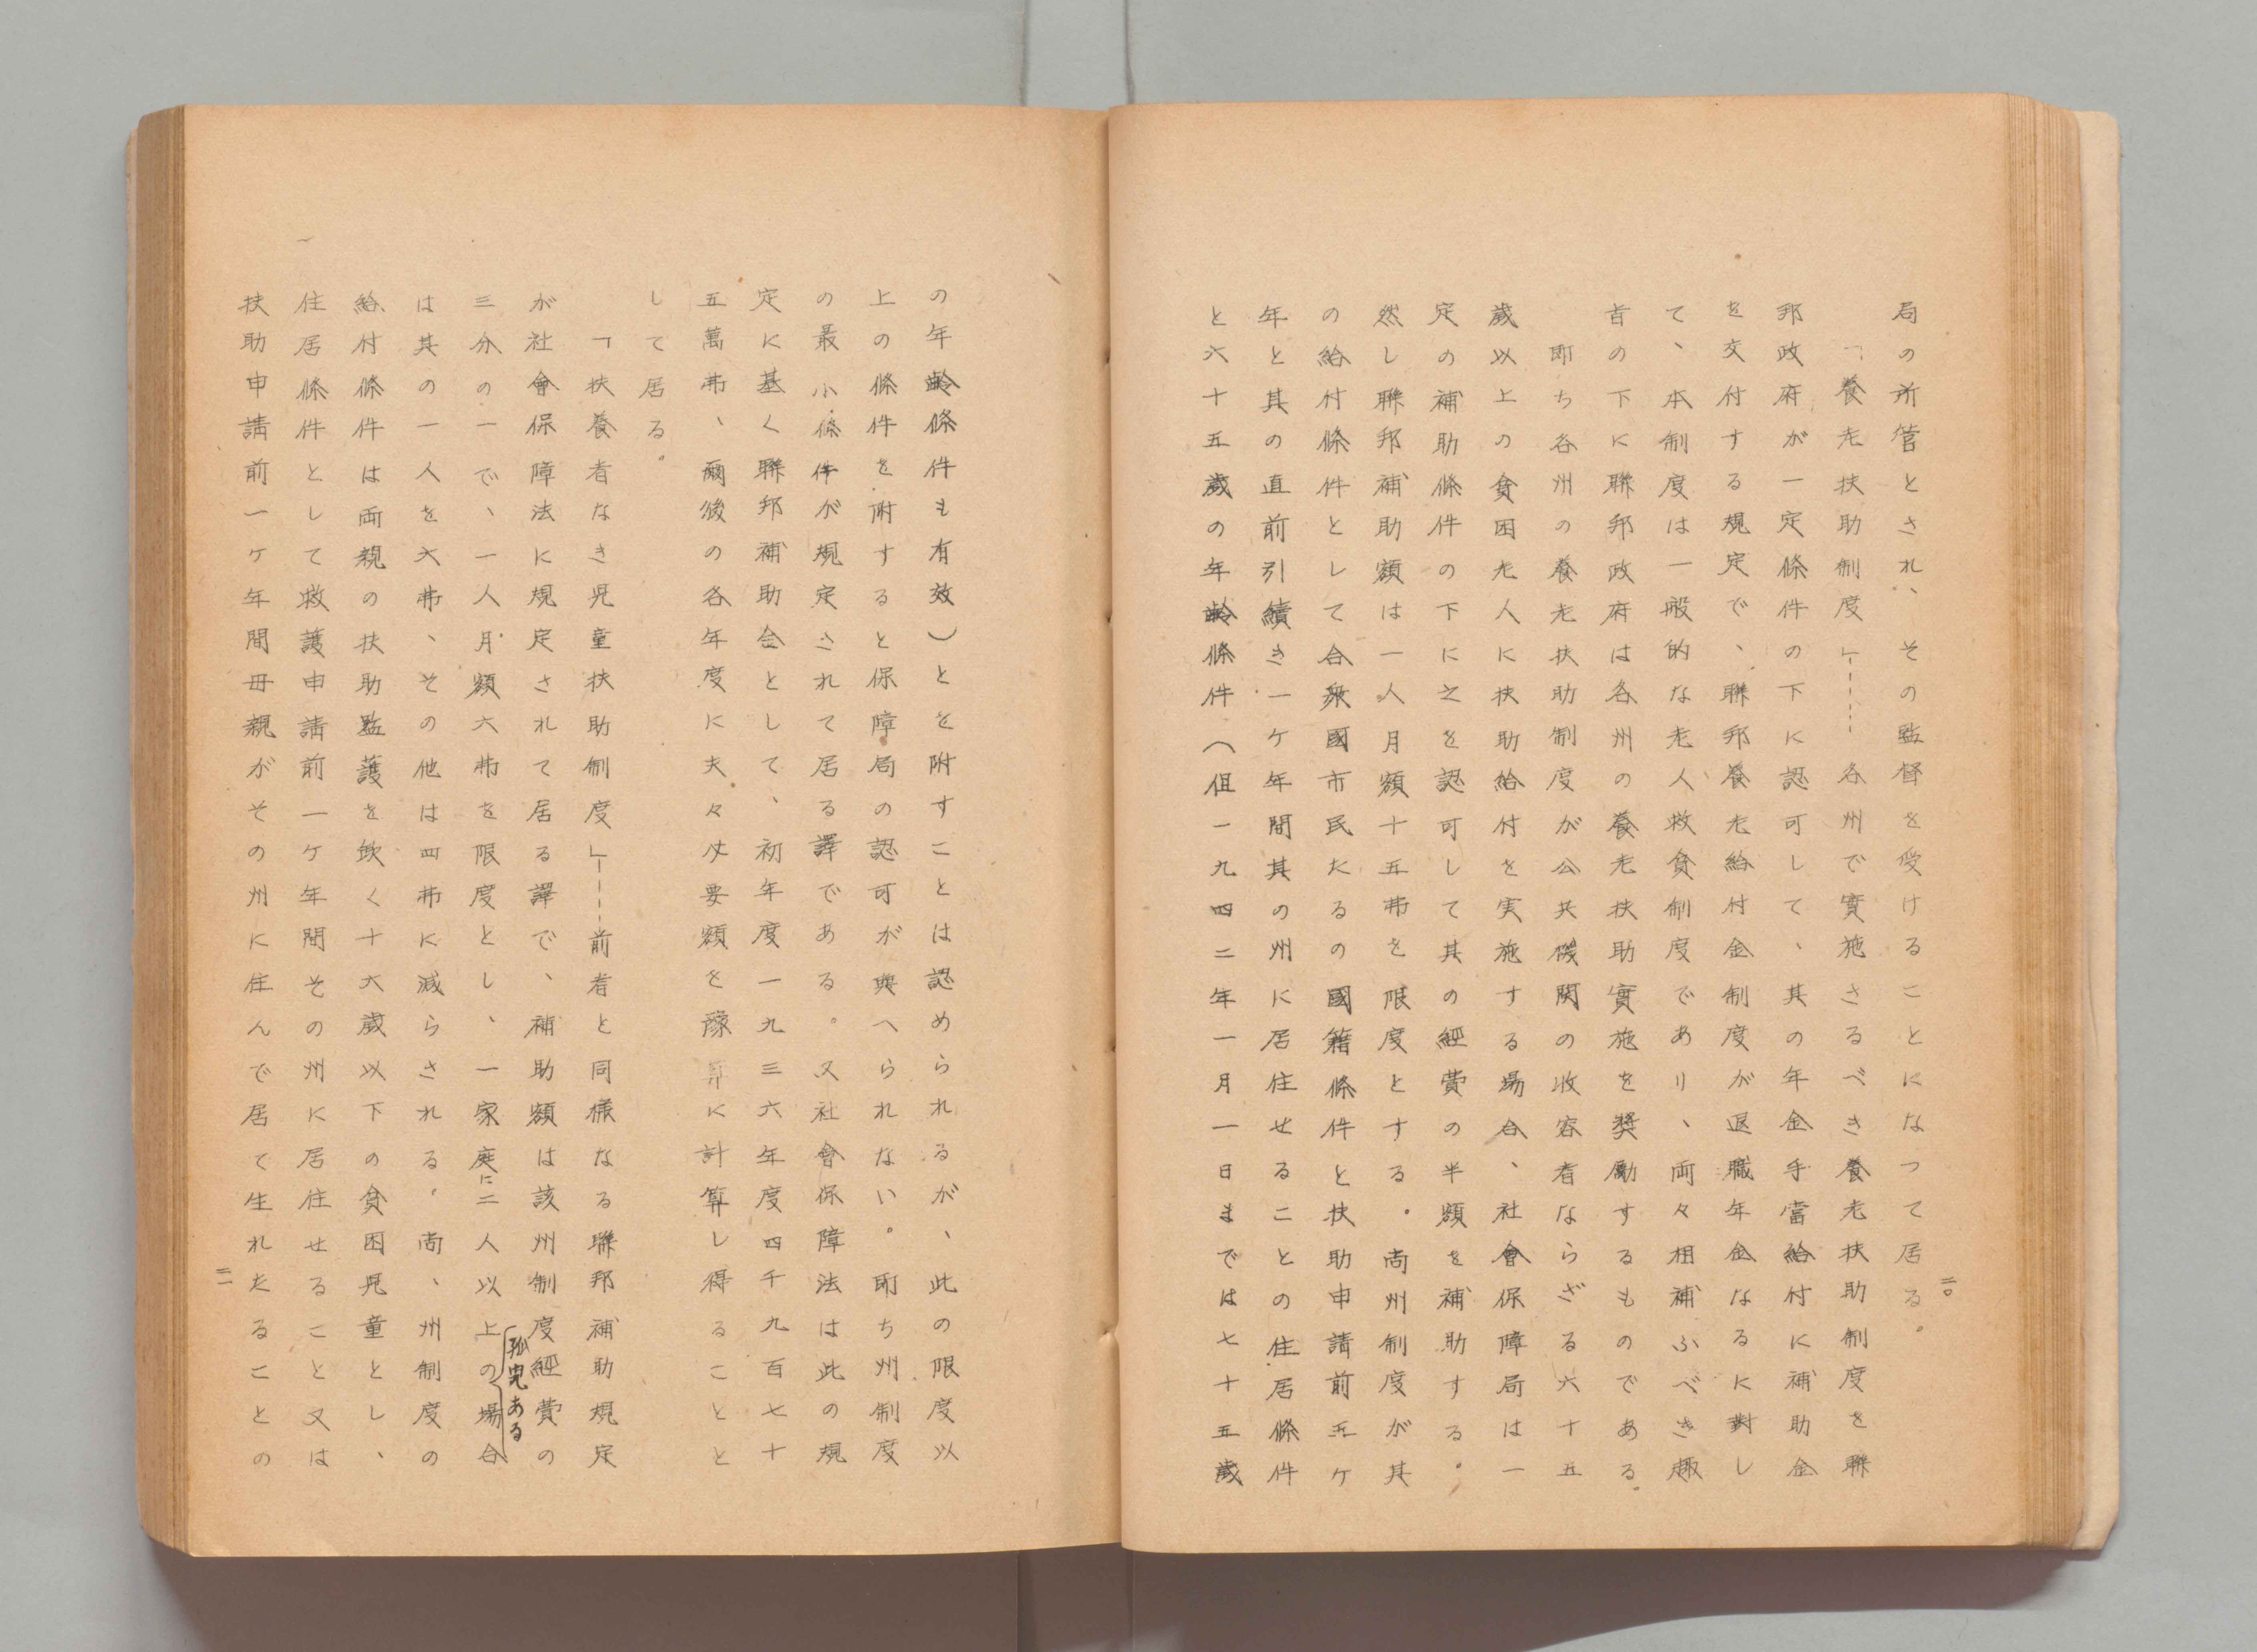 局の所管とされ、その監督を受けることになつて居る。
「養老扶助制度」-----各州で實施さるべき養老扶助制度を聯
邦政府が一定條件の下に認可して、其の年金手當給付に補助金
を交付する規定で、聯邦養老給付金制度が退職年金なるに對し
て、本制度は一般的な老人救貧制度であり、両々相補ふべき趣
旨の下に聯邦政府は各州の養老扶助實施を奬勵するものである。
即ち各州の養老扶助制度が公共機関の收容者ならざる六十五
歲以上の貧困老人に扶助給付を実施する場合、社會保障局は一
定の補助條件の下に之を認可して其の經費の半額を補助する。
然し聯邦補助額は一人月額十五弗を限度とする。尚州制度が其
の給付條件として合衆國市民たるの國籍條件と扶助申請前五ケ
年と其の直前引續き一ケ年間其の州に居住せることの住居條件
と六十五歲の年齡條件(但一九四二年一月一日までは七十五歲
二〇
の年齡條件も有效)とを附すことは認められるが、此の限度以
上の條件を附すると保障局の認可が與へられない。即ち州制度
の最小條件が規定されて居る譯である。又社會保障法は此の規
定に基く聯邦補助金として、初年度一九三六年度四千九百七十
五萬弗、爾後の各年度に夫々必要額を豫算に計算し得ることと
して居る。
「扶養者なき児童扶助制度」----前者と同樣なる聯邦補助規定
が社會保障法に規定されて居る譯で、補助額は該州制度經費の
三分の一で、一人月額六弗を限度とし、一家庭に二人以上の孤児ある場合
は其の一人を六弗、その他は四弗に減らされる。尚、州制度の
給付條件は両親の扶助監護を欽く十六歲以下の貧困児童とし、
住居條件として救護申請前一ケ年間その州に居住せること又は
扶助申請前一ケ年間母親がその州に住んで居て生れたることの
二一